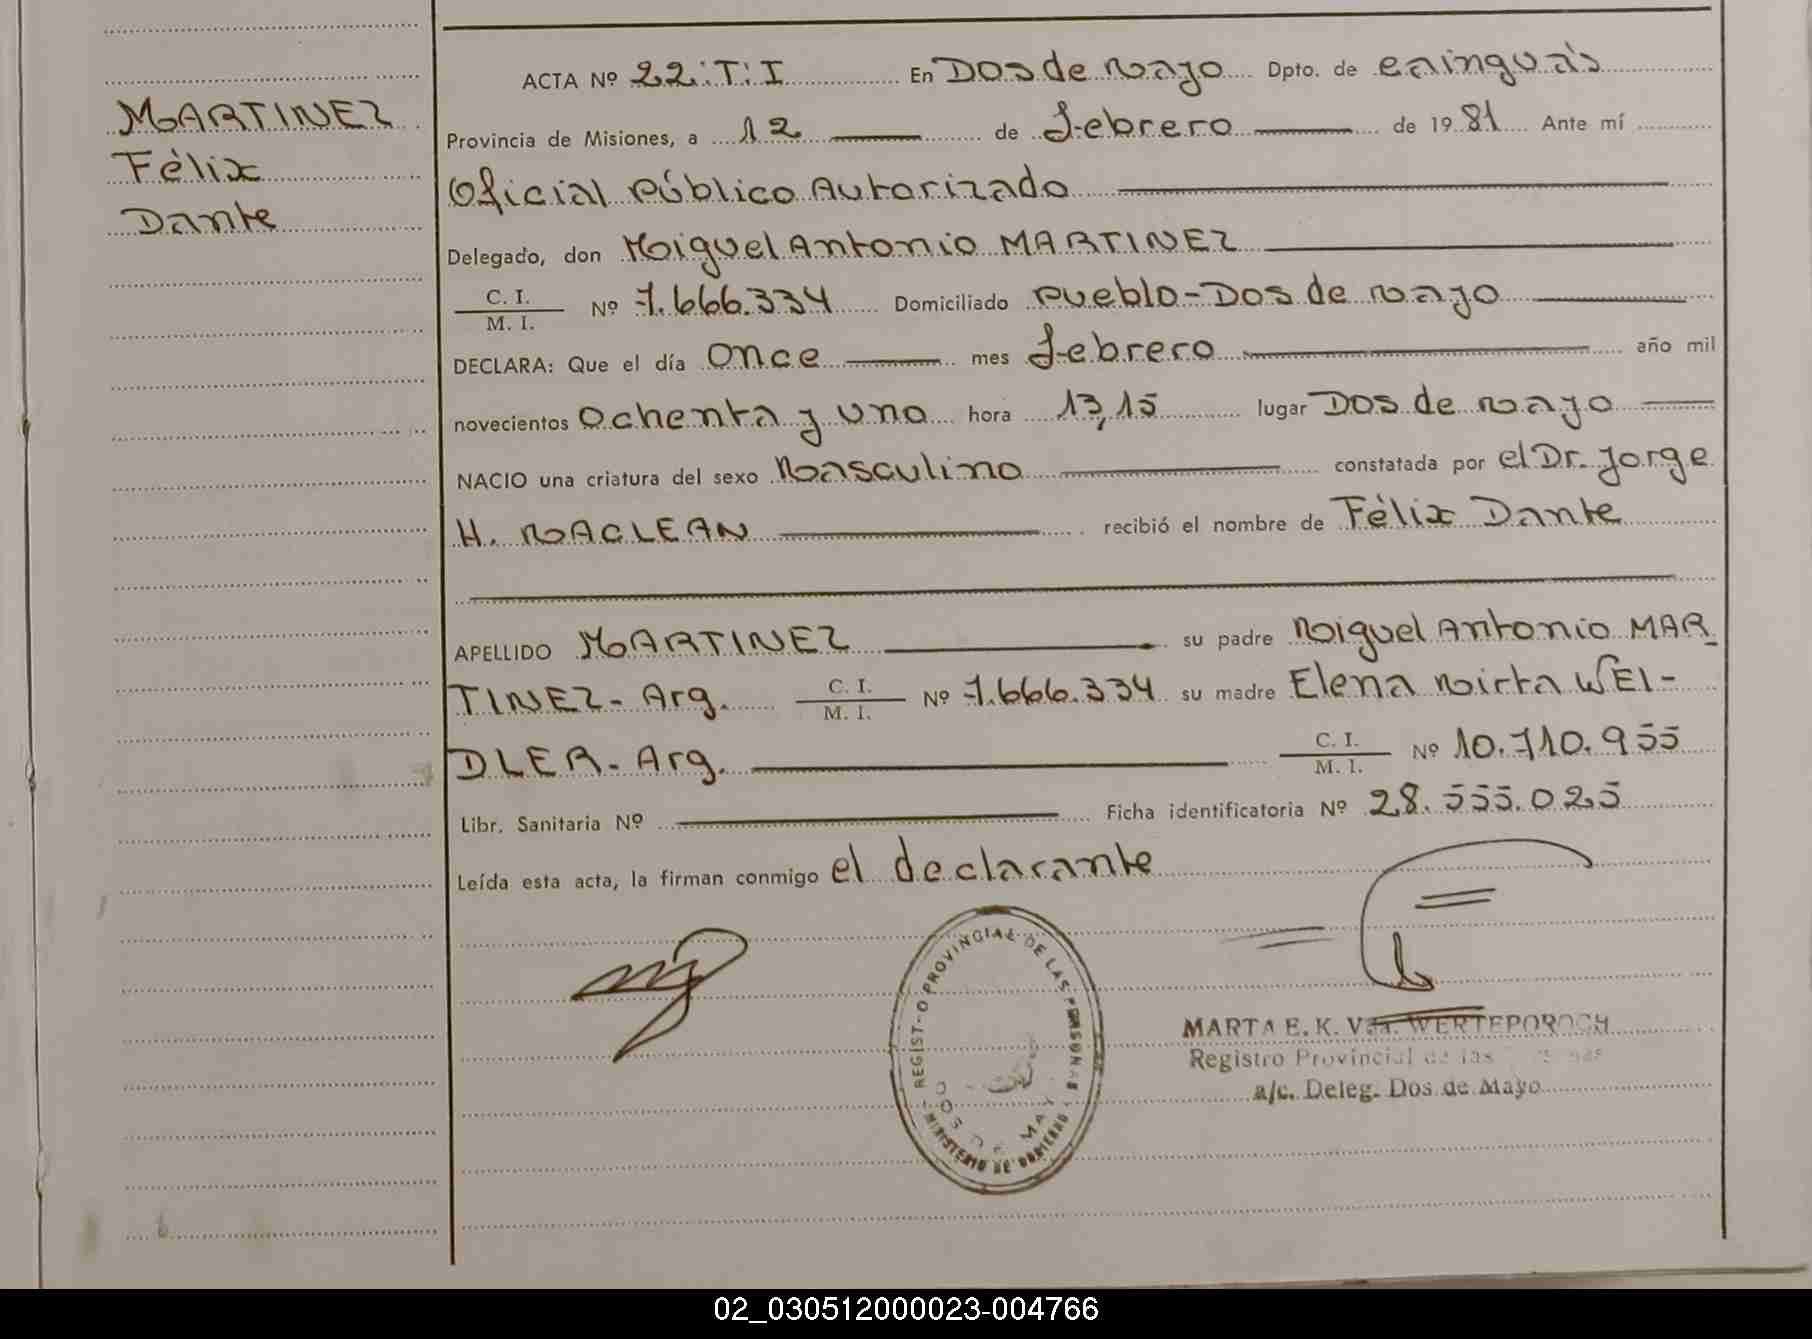 MARTINEZ
Félix
Dante
ACTA Nº 22:T:I En Dos de Mayo Dpto. de Cainguás
Provincia de Misiones, a 12 de Febrero de 1981 Ante mí
Oficial Público Autorizado
Delegado, don Miguel Antonio MARTINEZ
C. I.
M. I. Nº 7.666.334 Domiciliado Pueblo-Dos de Mayo
DECLARA: Que el día Once mes Febrero año mil
novecientos Ochenta y uno hora 13,15 lugar Dos de Mayo
NACIO una criatura del sexo Masculino constatada por el Dr. Jorge
H. MACLEAN recibió el nombre de Félix Dante
APELLIDO MARTINEZ su padre Miguel Antonio MAR_
TINEZ- Arg. C. I. M. I. Nº 7.666.334 su madre Elena Mirta WEI-
DLER- Arg. C. I. M. I. Nº 10.710.955
Libr. Sanitaria Nº Ficha identificatoria Nº 28.555.025
Leída esta acta, la firman conmigo el declarante
REGISTRO PROVINCIAL DE LAS PERSONAS
DOS DE MAYO
MINISTERIO DE GOBIERNO
MARTA E. K. Vda. WERTEPOROCH
Registro Provincial de las
a/c. Deleg. Dos de Mayo
02_030512000023-004766